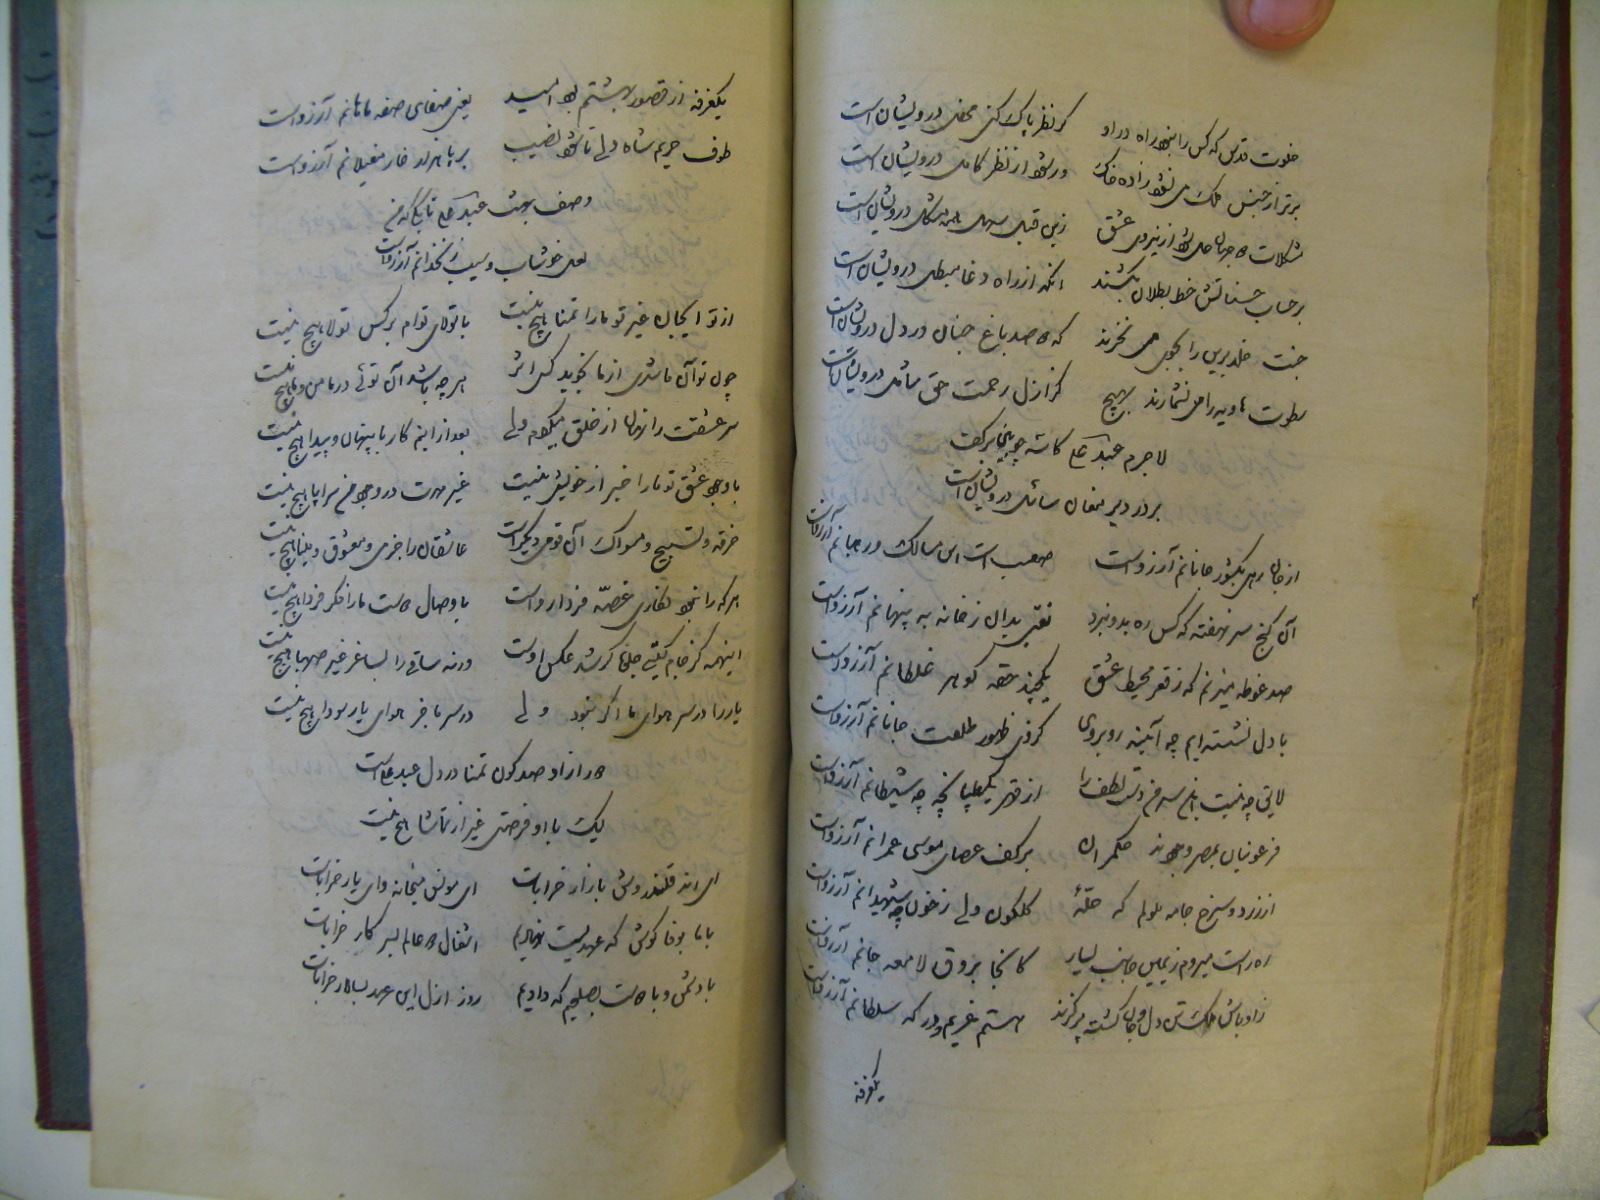 خلوت قدس که کس را نبود راه در او    گر نظر پاک کنی محفل درویشان است
برتر از جنس ملک می نشود زاده خاک    ور شود از نظر کامل درویشان است
مشکلات دو جهان حل شود از نیروی عشق    زین قبل سهل همه مشکل درویشان است
بر حساب حسناتش خط بطلان بکشند    آنکه از راه دغا مبطل درویشان است
جنت خلد برین را بجوی می نخرند    که دو صد باغ جنان در دل درویشان است
سطوت هاویه را می نشمارند بهیچ    کز ازل رحمت حق شامل درویشان است
لاجرم عبد علی کاسه چوبین بر کف
بر در دیر مغان سائل درویشان است
از جان رهی بکشور جانانم آرزوست    صعب است این مسالک و رهبانم آرزوست
آن گنج سر نهفته که کس ره بدو نبرد    نقبی بدان ز خانه به پنهانم آرزوست
صد غوطه میزنم که ز قعر محیط عشق    یکچند حقه گوهر غلطانم آرزوست
با دل نشسته ایم چه آئینه روبروی    کز وی ظهور طلعت جانانم آرزوست
لایق چه نیست سر من دست لطف را    از قهر یک طپانچه چه شیطانم آرزوست
فرعونیان بمصر وجودند حکمران    بر کف عصای موسی عمرانم آرزوست
از زرد و سرخ جامه ملولم که حلّهٔ    گلگون ولی ز خون چه شهیدانم آرزوست
ره راست میروم ز یمین جانب یسار    کانجا بروق لامعه جانم آرزوست
ز اوباش ملک تن دل و جان گشته پر گزند    هستم غریم و درگه سلطانم آرزوست
یکغرفه
یکغرفه از قصور بهشتم بود امید    یعنی صفای صفه ماهانم آرزوست
طوف حریم شاه ولی تا شود نصیب    بر پا هزار خار مغیلانم آرزوست
وصف بهشت عبد علی تا بکی که من
لعل خوشاب و سیب زنخدانم آرزوست
از تو ایجان غیر تو ما را تمنا هیچ نیست    با تولای توام بر کس تولا هیچ نیست
چون تو آن ما شدی از ما نجوید کس اثر    هر چه باشد آن توئی در ما من و ما هیچ نیست
سر عشقت را نهان از خلق میگویم ولی    بعد از اینم کار با پنهان و پیدا هیچ نیست
با وجود عشق تو ما را خبر از خویش نیست    غیر مهرت در وجود من سراپا هیچ نیست
خرقه و تسبیح و مسواک آن قومی دیگر است    عاشقان را جز می و معشوق و مینا هیچ نیست
هر که را نبود نگاری غصّه فردا رواست    با وصال دوست ما را فکر فردا هیچ نیست
اینهمه کز جام گیتی جلوه گر شد عکس اوست    ورنه ساقی را بساغر غیر صهبا هیچ نیست
یار را در سر هوای ما اگر نبود ولی    در سر ما جز هوای یار سودا هیچ نیست
دور از او صد گون تمنا در دل عبد علی است
لیک با او فرصتی غیر از تماشا هیچ نیست
ای رند قلندروش بازار خرابات    ای مونس میخانه و ای یار خرابات
با ما بوفا کوش که عهدیست    اشغال دو عالم بسر کار خرابات
با دشمن و با دوست بصلحیم که دادیم    روز ازل این عهد بسالار خرابات